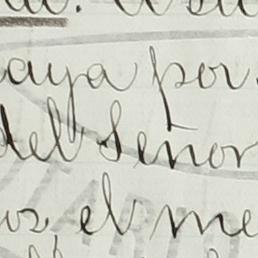 aya por
del Señor
os el me